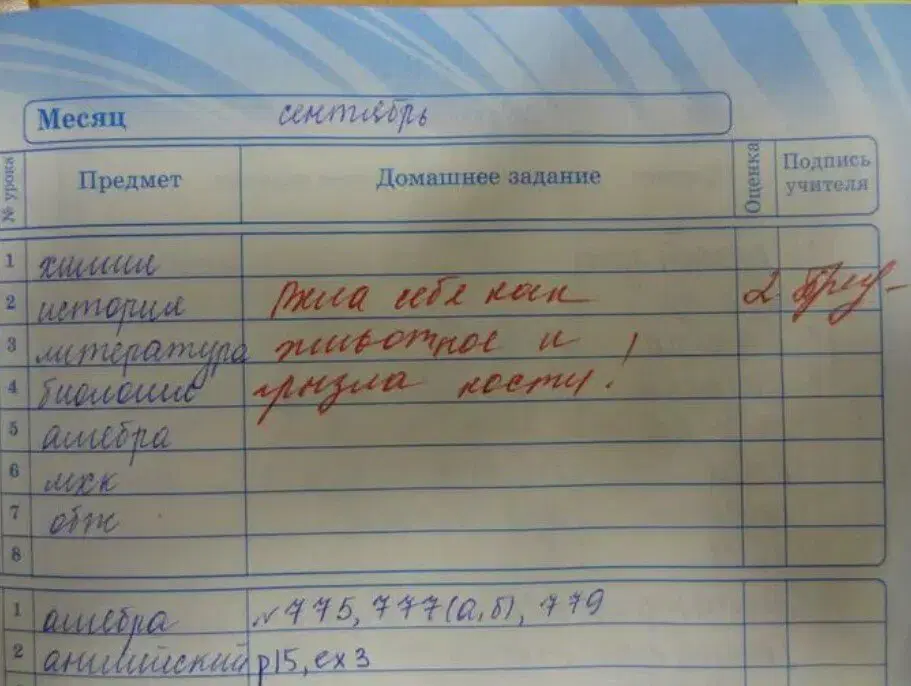 Месяц сентябрь
№ урока Предмет Домашнее задание Оценка Подпись учителя
1 химия
2 история Вела себя как 2
3 литература животное и
4 биология грызла кости!
5 алгебра
6 мхк
7 обж
8
1 алгебра №775, 777(а,б), 779
2 английский p15, ex3